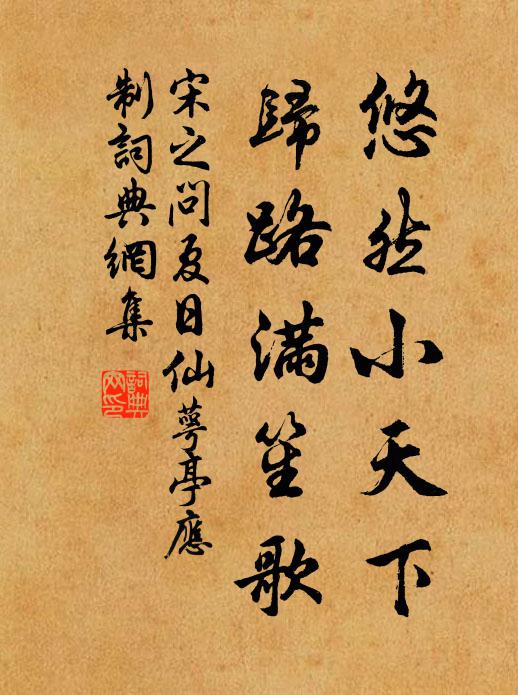 悠然小天下
歸路滿笙歌
宋之问夏日仙萼亭應
制詞典網集
詞典
网印